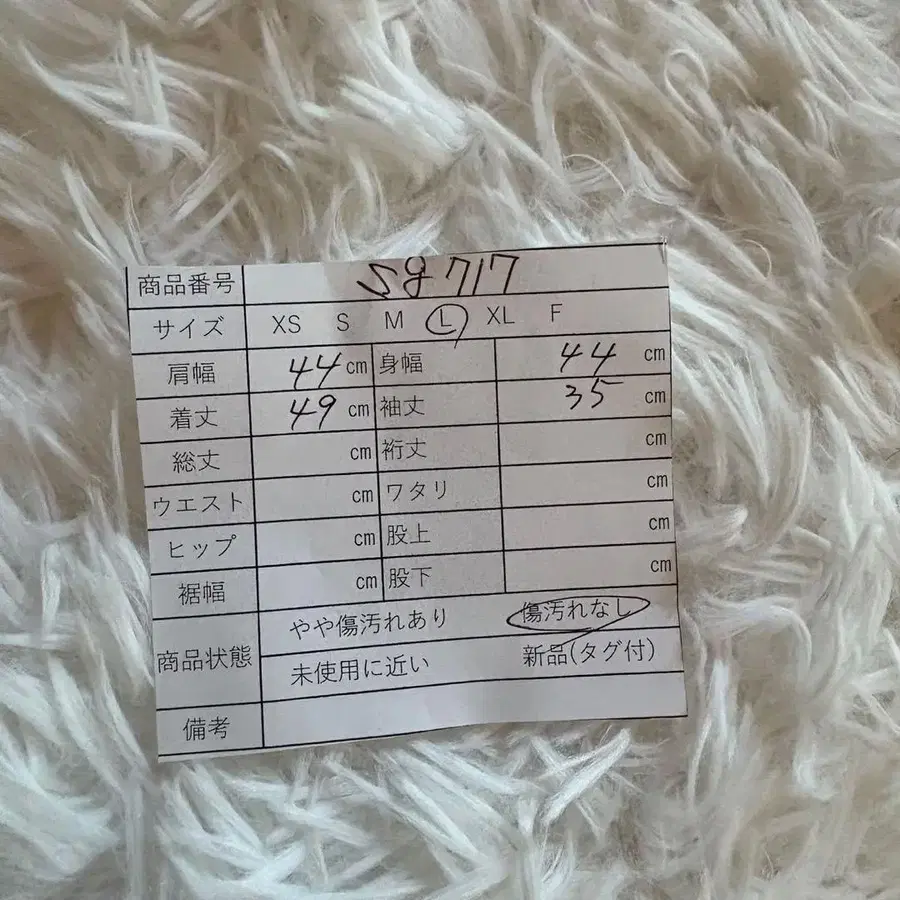 商品番号 Sg717
サイズ XS S M L XL F
肩幅 44 cm 身幅 44 cm
着丈 49 cm 袖丈 35 cm
総丈 cm 裄丈 cm
ウエスト cm ワタリ cm
ヒップ cm 股上 cm
裾幅 cm 股下 cm
商品状態 やや傷汚れあり 傷汚れなし
未使用に近い 新品(タグ付)
備考